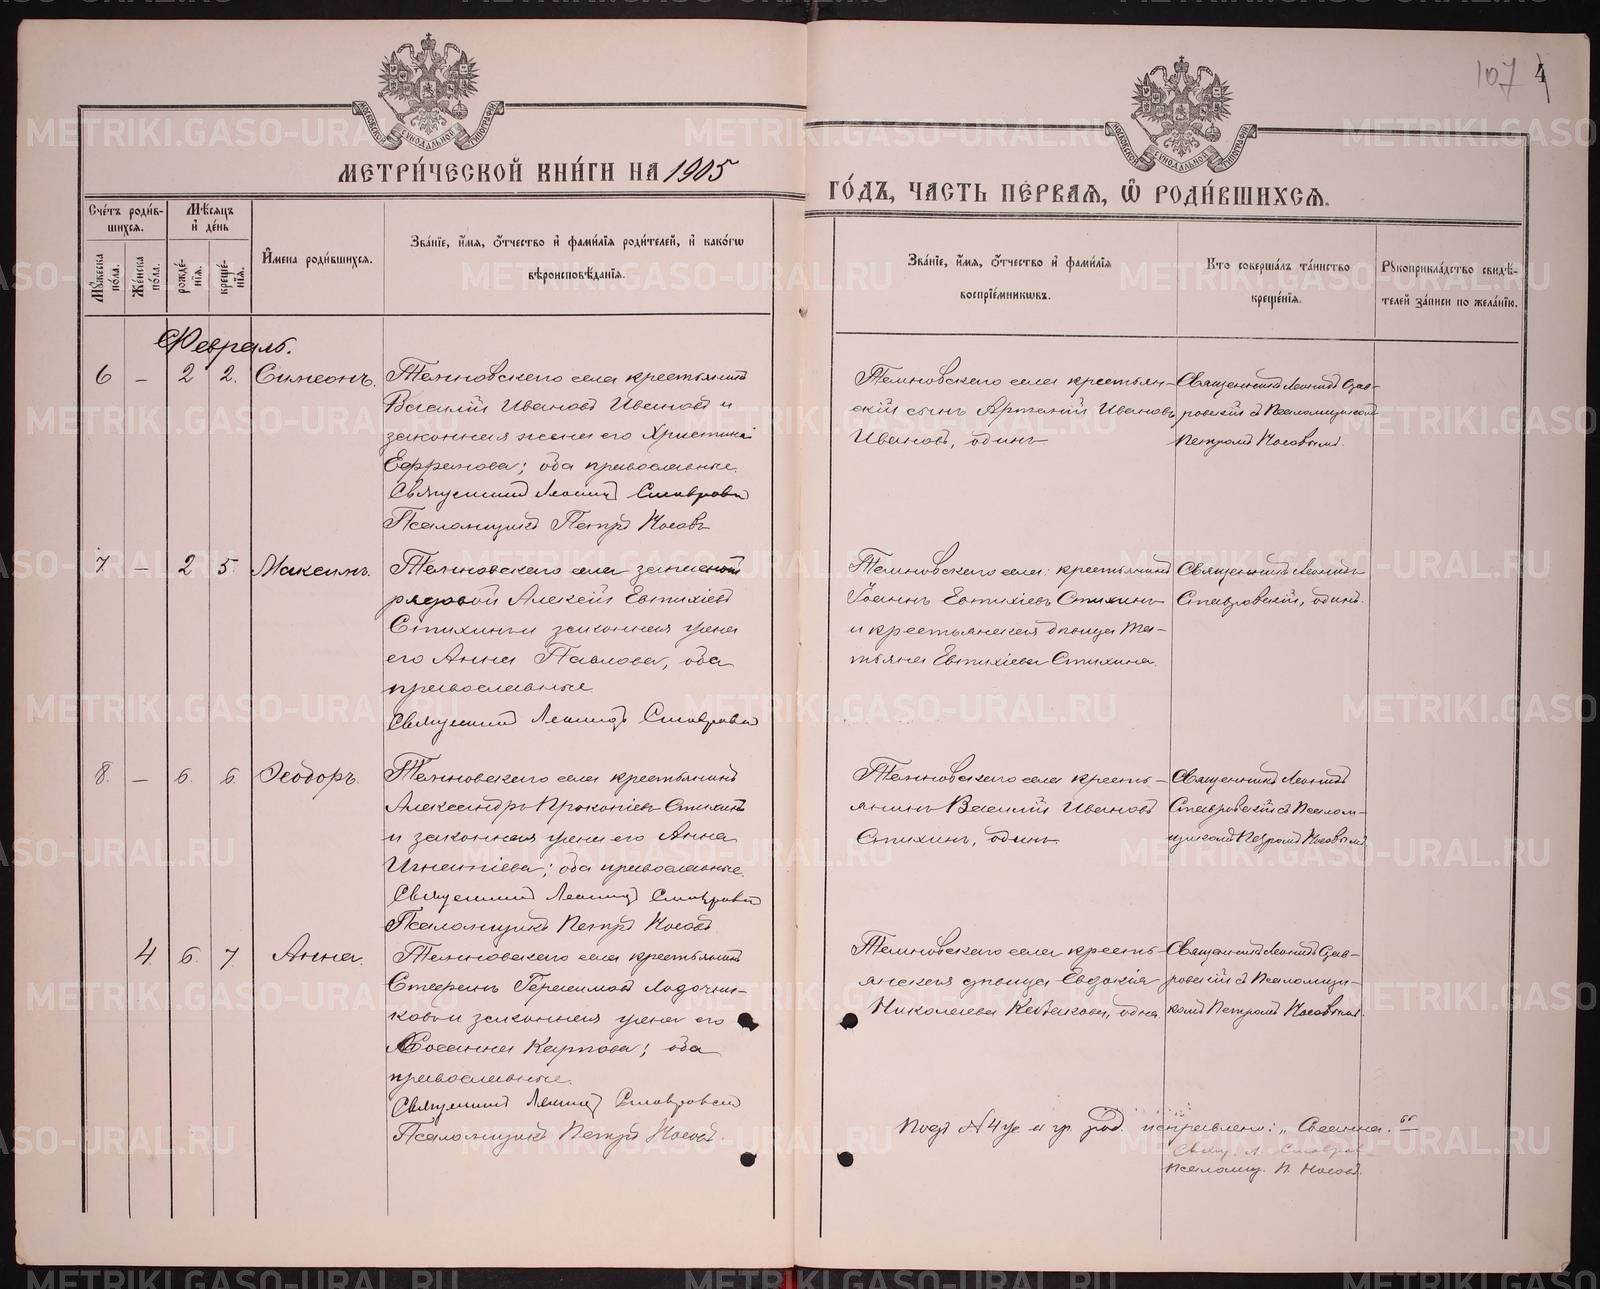 107 4
МЕТРИ́ЧЕСКОЙ КНИ́ГИ НА 1905
ГО́ДЪ, ЧАСТЬ ПЕ́РВАЯ, Ѽ РОДИ́ВШИХСЯ.
МОСКОВСКОЙ СѴНОДАЛЬНОЙ ТИПОГРАФІИ
МОСКОВСКОЙ СѴНОДАЛЬНОЙ ТИПОГРАФІИ
Счётъ роди́вшихся.
Му́жеска по́ла.
Же́нска по́ла.
Мѣ́сяцъ и де́нь
рожде́нія.
креще́нія.
И҆мена роди́вшихся.
Зва́ніе, и҆́мя, ѻ҆́тчество и҆ фами́лія роди́телей, и҆ како́гѡ
вѣроисповѣ́данія.
Зва́ніе, и҆́мя, ѻ҆́тчество и҆ фами́лія
воспріе́мникѡвъ.
Кто соверша́лъ та́инство
креще́нія.
Рукоприкла́дство свидѣ́-
телей за́писи по жела́нію.
Февраль.
6 – 2 2. Симеонъ.
Темновскаго села крестьянинъ
Василій Ивановъ Ивановъ и
законная жена его Христина
Ефремова; оба православные.
Священникъ Леонидъ Ставровскій
Псаломщикъ Петръ Носовъ
Темновскаго села крестьян-
скій сынъ Артемій Ивановъ
Ивановъ, одинъ
Священникъ Леонидъ Став-
ровскій с Псаломщикомъ
Петромъ Носовымъ.
7. – 2 5. Максимъ.
Темновскаго села запасной
рядовой Алексѣй Евтихіевъ
Стихинъ и законная жена
его Анна Павлова, оба
православные
Священникъ Леонидъ Ставровскій
Темновскаго села: крестьянинъ
Іоаннъ Евтихіевъ Стихинъ
и крестьянская дѣвица Та-
тьяна Евтихіева Стихина.
Священникъ Леонидъ
Ставровскій, одинъ.
8. – 6. 6. Ѳеодоръ.
Темновскаго села крестьянинъ
Александръ Прокопіевъ Стихинъ
и законная жена его Анна
Игнатіева; оба православные.
Священникъ Леонидъ Ставровскій
Псаломщикъ Петръ Носовъ.
Темновскаго села кресть-
янинъ Василій Ивановъ
Стихинъ, одинъ
Священникъ Леонидъ
Ставровскій с Псалом-
щикомъ Петромъ Носовымъ
4. 6. 7. Анна.
Темновскаго села крестьянинъ
Стефанъ Герасимовъ Лодочни-
ковъ и законная жена его
Сосанна Карпова; оба
православные.
Священникъ Леонидъ Ставровскій
Псаломщикъ Петръ Носовъ.
Темновскаго села кресть-
янская дѣвица Евдокія
Николаева одна
Священникъ Леонидъ Став-
ровскій с Псаломщи-
комъ Петромъ Носовымъ.
Подъ №4 исправлено: „Сосанна.“
Свящ. Л. Ставров
Псаломщ. П. Носовъ.
METRIKI.GASO-URAL.RU